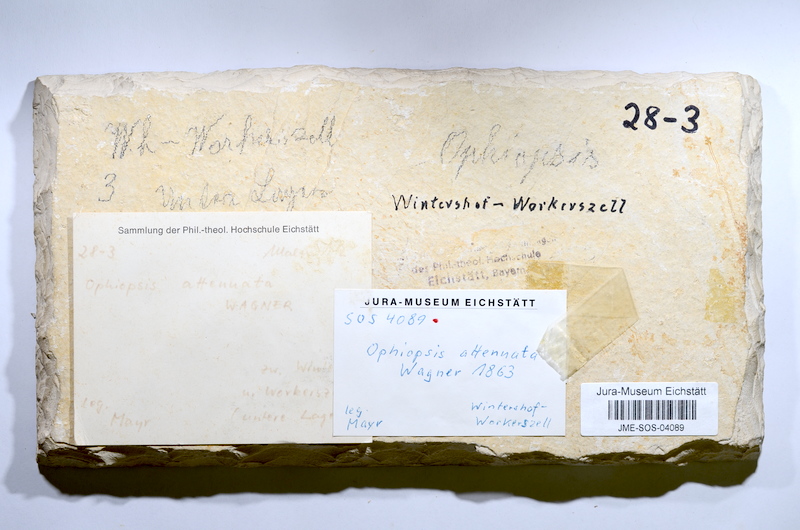 28-3
Wh - Workerszell
3 untere Lagen
Ophiopsis
Wintershof - Workerszell
der Phil.-theol. Hochschule
Eichstätt, Bayern
Sammlung der Phil.-theol. Hochschule Eichstätt
28-3
Ophiopsis attennuata
WAGNER
zw. Wint
u. Workersz
(untere Lage
leg.
Mayr
JURA-MUSEUM EICHSTÄTT
SOS 4089
Ophiopsis attennuata
Wagner 1863
leg. Wintershof-
Mayr Workerszell
Jura-Museum Eichstätt
JME-SOS-04089